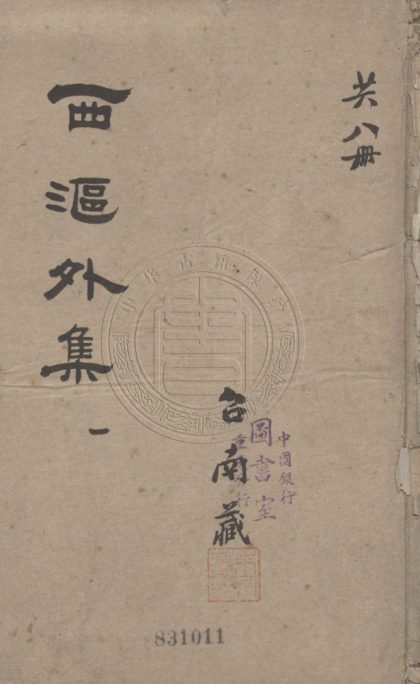 共八冊
西漚外集 一
台南藏
中國銀行
圖書室
831011